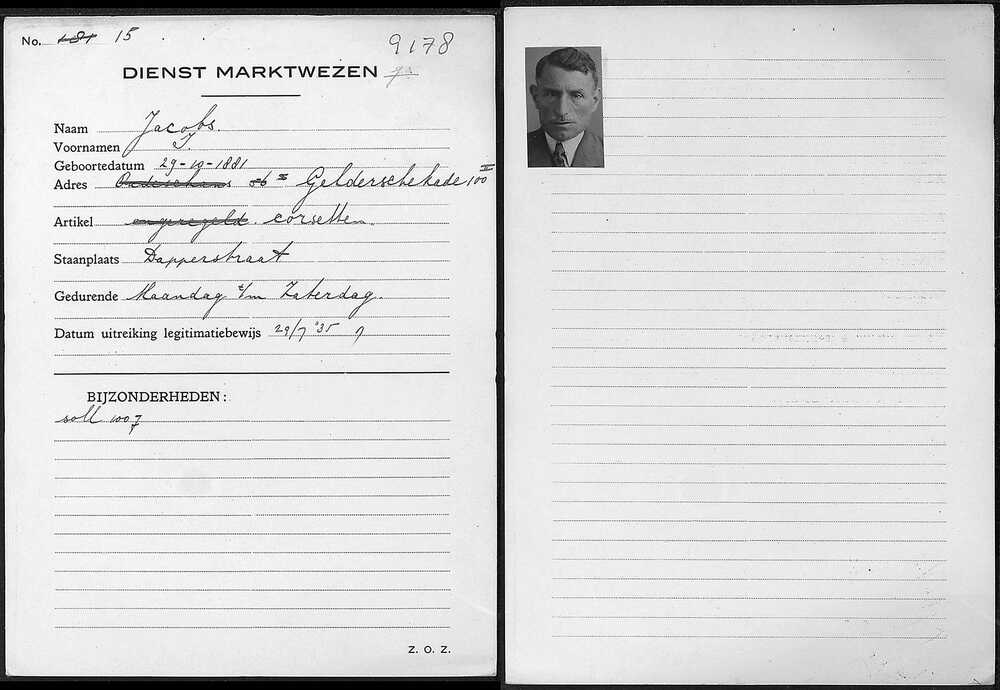 No. 181 15
9178
DIENST MARKTWEZEN
Naam Jacobs.
Voornamen I.
Geboortedatum 29-10-1881
Adres Oudeschans 56 II Gelderschekade 100 II
Artikel ongeregeld. corsetten.
Staanplaats Dapperstraat
Gedurende Maandag t/m Zaterdag.
Datum uitreiking legitimatiebewijs 29/7 '35
BIJZONDERHEDEN:
soll 1007
Z. O. Z.